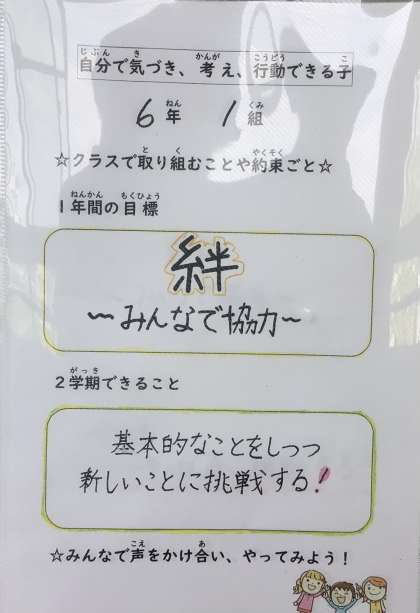 自分で気づき、考え、行動できる子
6年 1組
☆クラスで取り組むことや約束ごと☆
1年間の目標
絆
〜みんなで協力〜
2学期できること
基本的なことをしつつ
新しいことに挑戦する!
☆みんなで声をかけ合い、やってみよう！